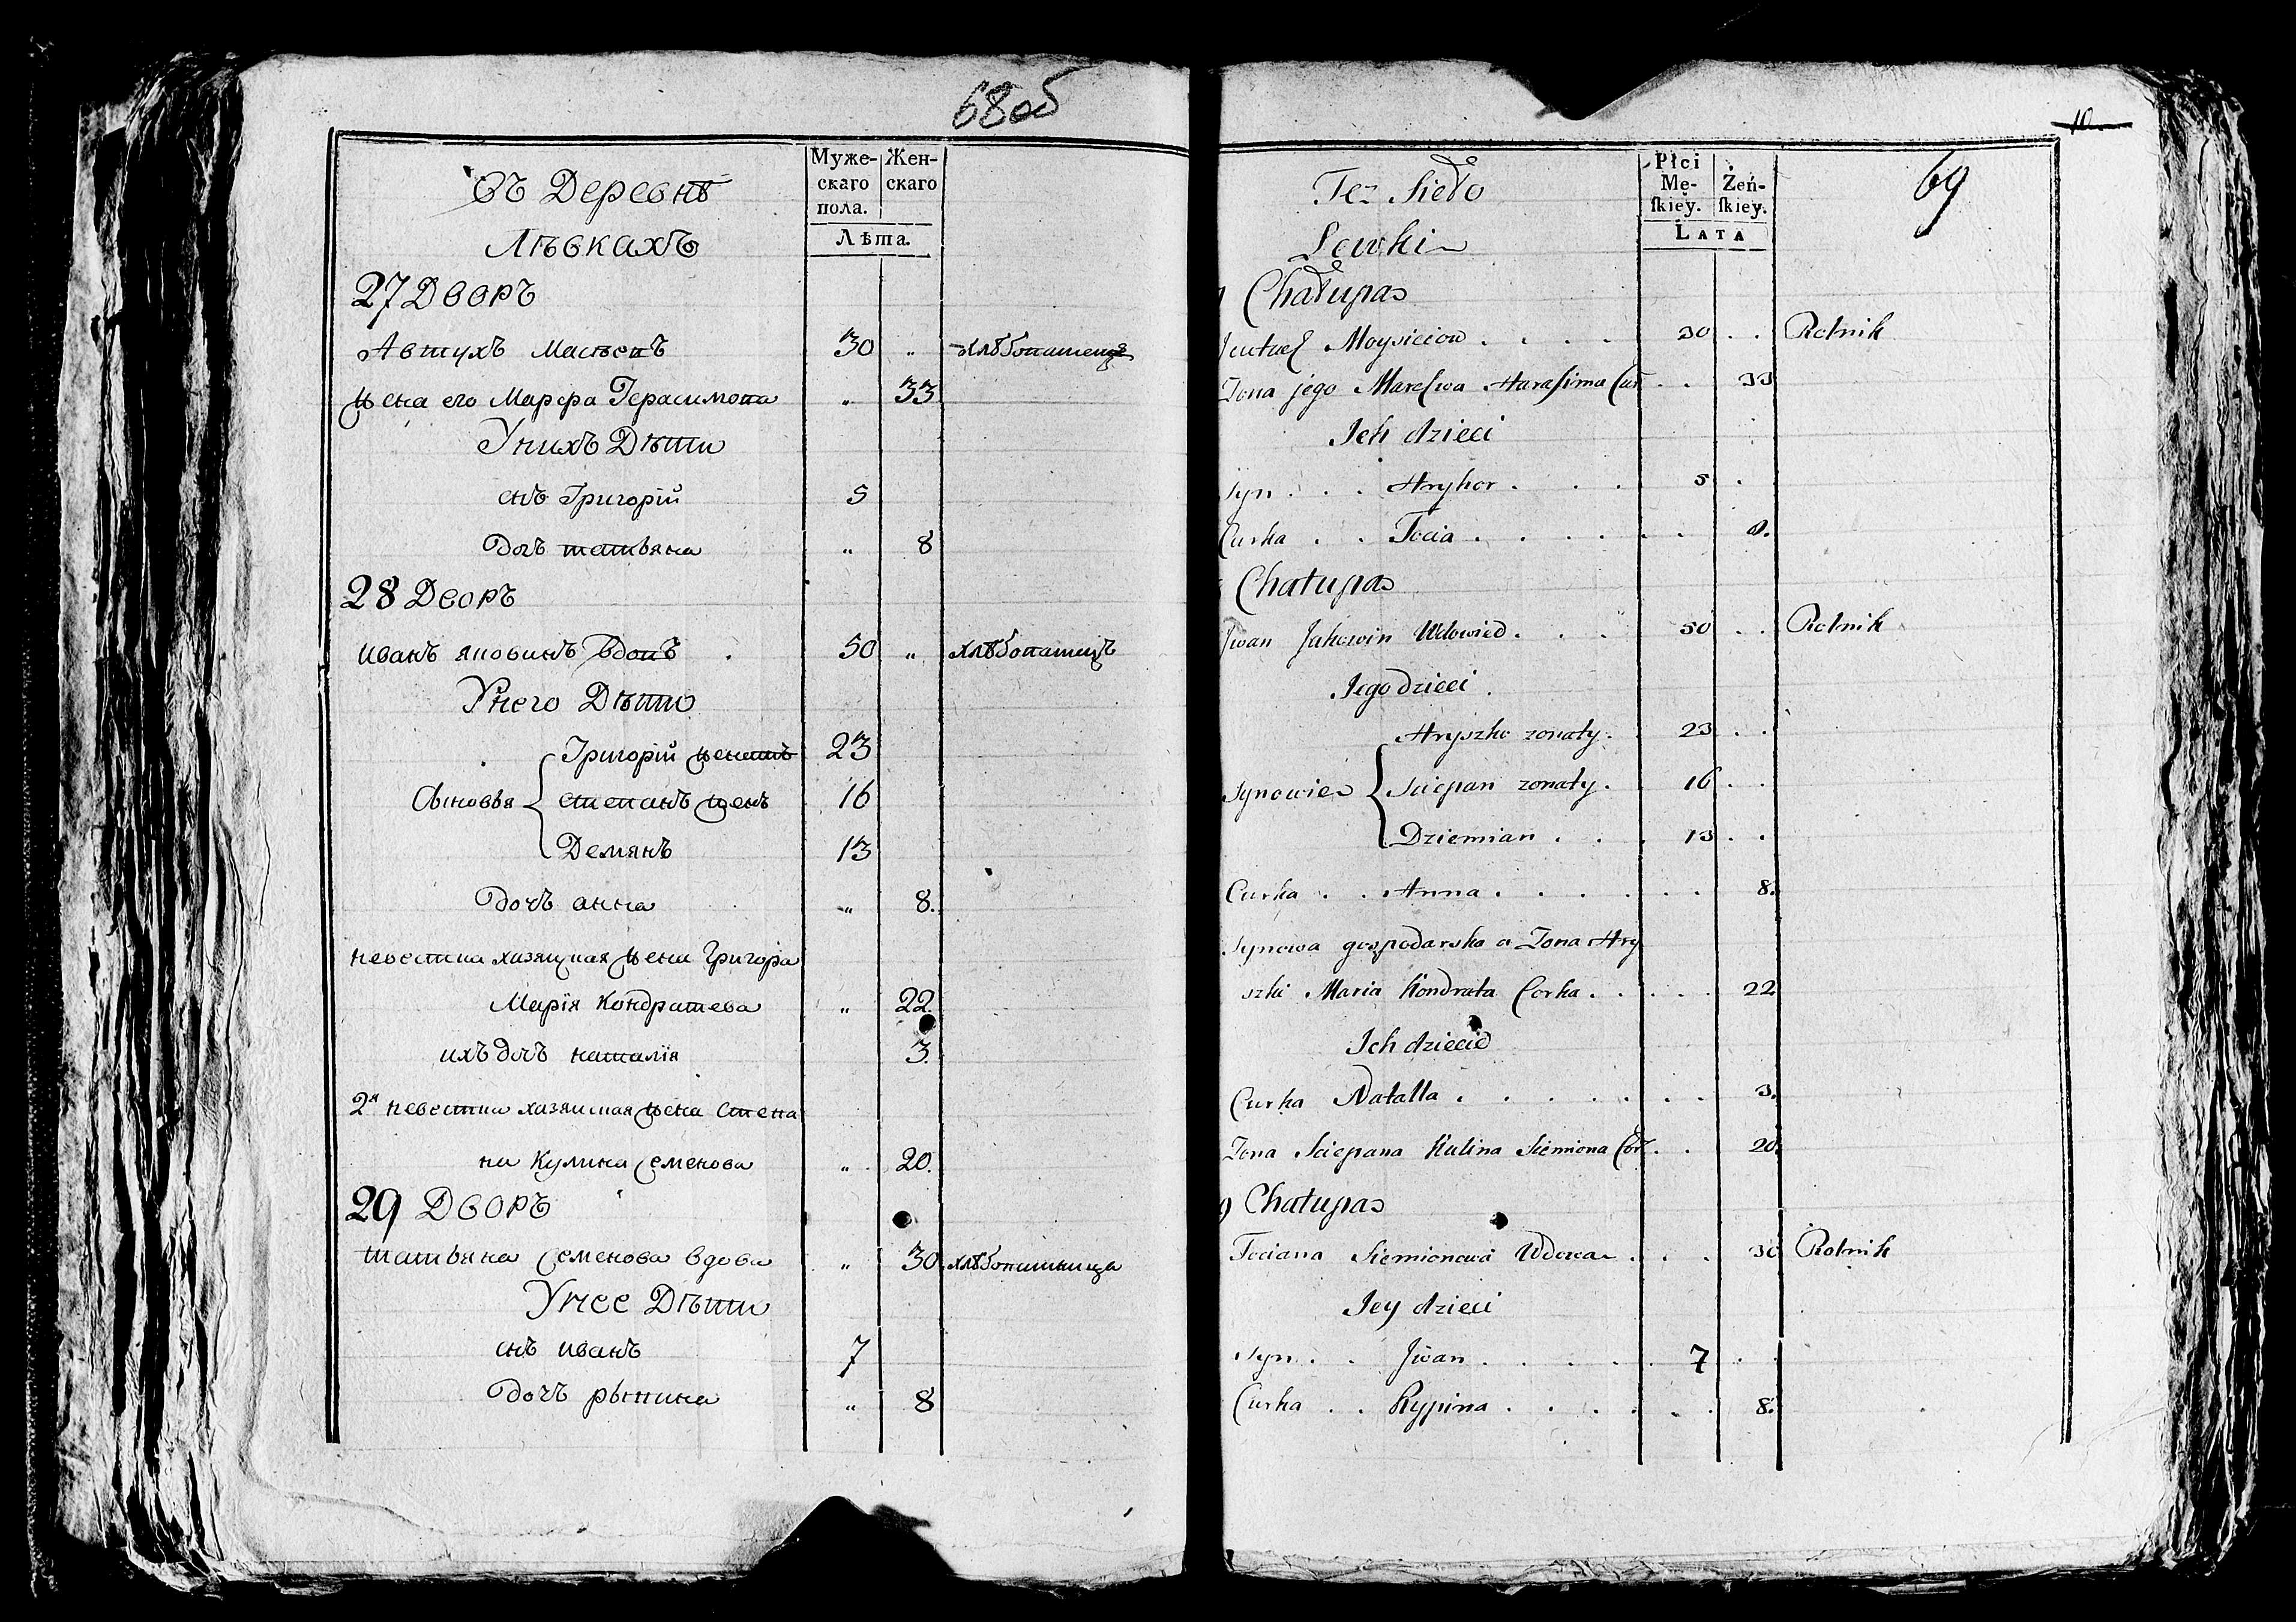 68об
Въ Деревнѣ
Лѣвкахъ
Муже-
скаго
пола.
Жен-
скаго
Лѣта.
27 Дворъ
Автухъ 30 „ хлѣбопашецъ
жена его Марфа Герасимова „ 33
У нихъ Дѣти
снъ Григорій 5
дочъ татьяна „ 8
28 Дворъ
иванъ яковинъ вдовъ . 50 „ хлѣбопашецъ
У него Дѣти
Григорій женатъ 23
Сыновья степанъ жен 16
Демянъ 13
дочъ анна „ 8.
невестка жена Григора
Марія Кондратева „ 22.
ихъ дочъ наталія 3.
2я невестка жена степа
на Кулина Семенова „ 20.
29 Дворъ
татьяна Семенова вдова „ 30 хлѣбопашница
У нее Дѣти
снъ иванъ 7
дочъ рыпина „ 8
10
69
Też Sieło
Lewki
Płci
Mę-
ſkiey.
Żeń-
ſkiey.
LATA
Chałupa
Moysieiow . . . . 30 . . Rolnik
Zona jego Harasima Cur . . 33
Ich dzieci
Syn . . . Hryhor . . . 5 .
Curka . . Tocia . . . . . . 8.
Chałupa
Jwan Jakowin Wdowiec . . . 50 . . Rolnik
Jego dzieci .
Hryszko zonaty . 23 . .
Synowie Sciepan zonaty . 16 . .
Dziemian . . . 13 . .
Curka . . Anna . . . . . . 8.
Synowa gospodarska a Zona Hry
szki Maria Kondrata Corka . . . . 22
Ich dziecie
Curka Natalla . . . . . . . 3.
Zona Sciepana Kulina Siemiona Cor . . 20.
9 Chałupa
Tociana Siemionowa Wdowa . . . 30 Rolnik
Jey dzieci
Syn . . Jwan . . . . . 7 . .
Curka . . Rypina . . . . . . 8.